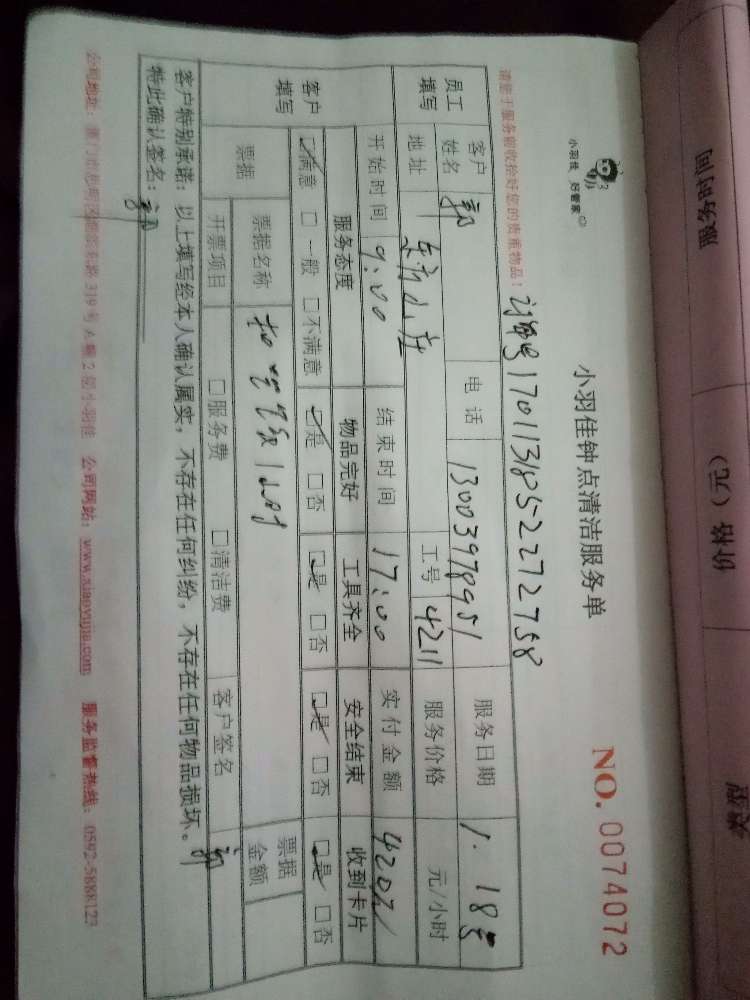 小羽佳 好管家
小羽佳钟点清洁服务单
NO. 0074072
请您于服务前收拾好您的贵重物品!
1701131852272758
员工填写
客户姓名 郭 电话 13003978951 服务日期 1.18号
地址 工号 4211 服务价格 元/小时
开始时间 9:00 结束时间 17:00 实付金额 420元
客户填写
服务态度 物品完好 工具齐全 安全结束 收到卡片
☑满意 □一般 □不满意 ☑是 □否 ☑是 □否 ☑是 □否 ☑是 □否
票据 票据名称 票据金额
开票项目 □服务费 □清洁费 客户签名 郭
客户特别承诺:以上填写经本人确认属实,不存在任何纠纷,不存在任何物品损坏。
特此确认签名:郭
公司地址:厦门市 319号A幢2楼小羽佳 公司网站:www.xiaoyujia.com 服务监督热线:0592-5888123
服务时间
价格(元)